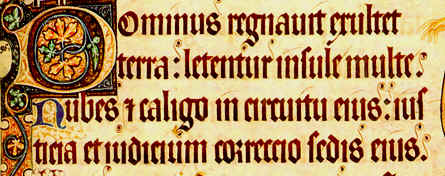 Dominus regnavit exultet
terra: letentur insule multe.
Nubes ⁊ caligo in circuitu eius: ius
ticia et iudicium correccio sedis eius.